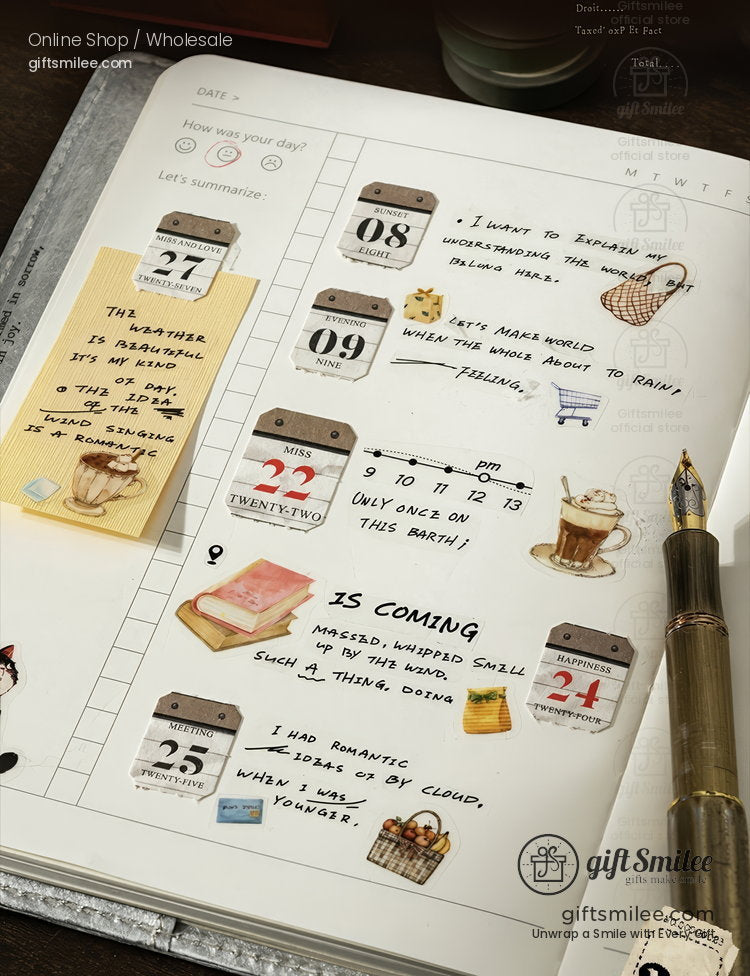 Online Shop / Wholesale
giftsmilee.com
Droit......
'Taxed' oxP Et Fact
Total....
Giftsmilee
official store
gift Smilee
Giftsmilee
official store
gift Smilee
Giftsmilee
official store
DATE >
M T W T F S
How was your day?
Let's summarize:
in joy.
MISS AND LOVE
27
TWENTY-SEVEN
THE
WEATHER
IS BEAUTIFUL
IT'S MY KIND
OF DAY.
THE IDEA
OF THE
WIND SINGING
IS A ROMANTIC
SUNSET
08
EIGHT
• I WANT TO EXPLAIN MY
UNDERSTANDING THE WORLD, BUT
BELUNG HERE.
EVENING
09
NINE
LET'S MAKE WORLD
WHEN THE WHOLE ABOUT TO RAIN,
FEELING.
MISS
22
TWENTY-TWO
pm
9 10 11 12 13
ONLY ONCE ON
THIS BARTH;
IS COMING
MASSED, WHIPPED SMELL
UP BY THE WIND.
SUCH A THING. DOING
HAPPINESS
24
TWENTY-FOUR
MEETING
25
TWENTY-FIVE
I HAD ROMANTIC
IDEAS OF BY CLOUD.
WHEN I WAS
YOUNGER.
gift Smilee
gifts make smile
giftsmilee.com
Unwrap a Smile with Every Gift